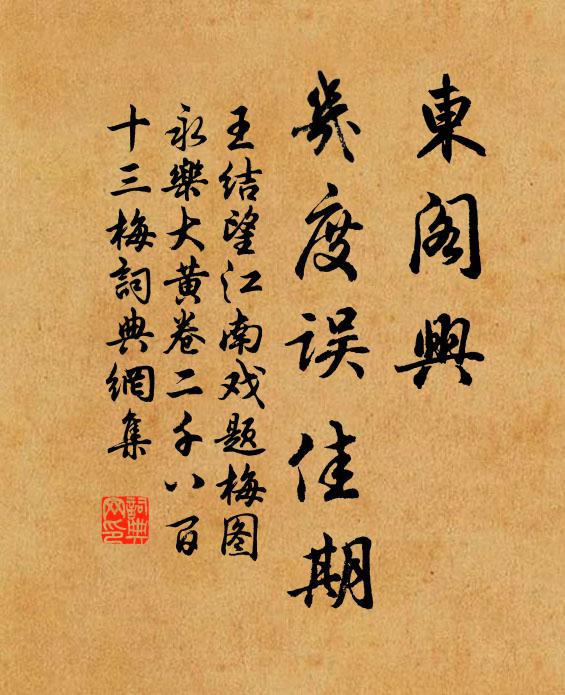 東閣興
幾度误佳期
王结望江南戏题梅图
永樂大黄卷二千八百
十三梅詞典網集
詞典
网印